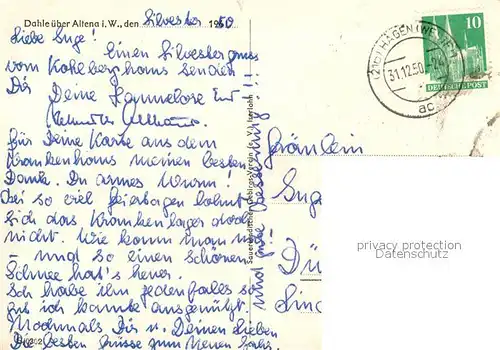 Dahle über Altena i. W., den Silvester 1950
Liebe Inge!
Einen Silvestergruss
vom Kohlberghaus senden
Dir Deine Hannelore und
Helmut
Für Deine Karte aus dem
Krankenhaus meinen besten
Dank. Du armes Wurm!
Bei so viel Feiertagen lohnt
sich das Krankenlager doch
nicht. Wie kann man nur!
– und so einen schönen
Schnee hat's heuer.
Ich habe ihn jedenfalls so
gut ich konnte ausgenützt.
Nochmals Dir u. Deinen Lieben
Die besten Grüsse zum Neuen Jahr.
und gute Besserung!!!
Sauerländischer Gebirgs-Verein (e. V.) Iserlohn
(21b) HAGEN (WESTF)
31.12.50.
ac
10
DEUTSCHE POST
Fräulein
Inge
Dü
privacy protection
Datenschutz